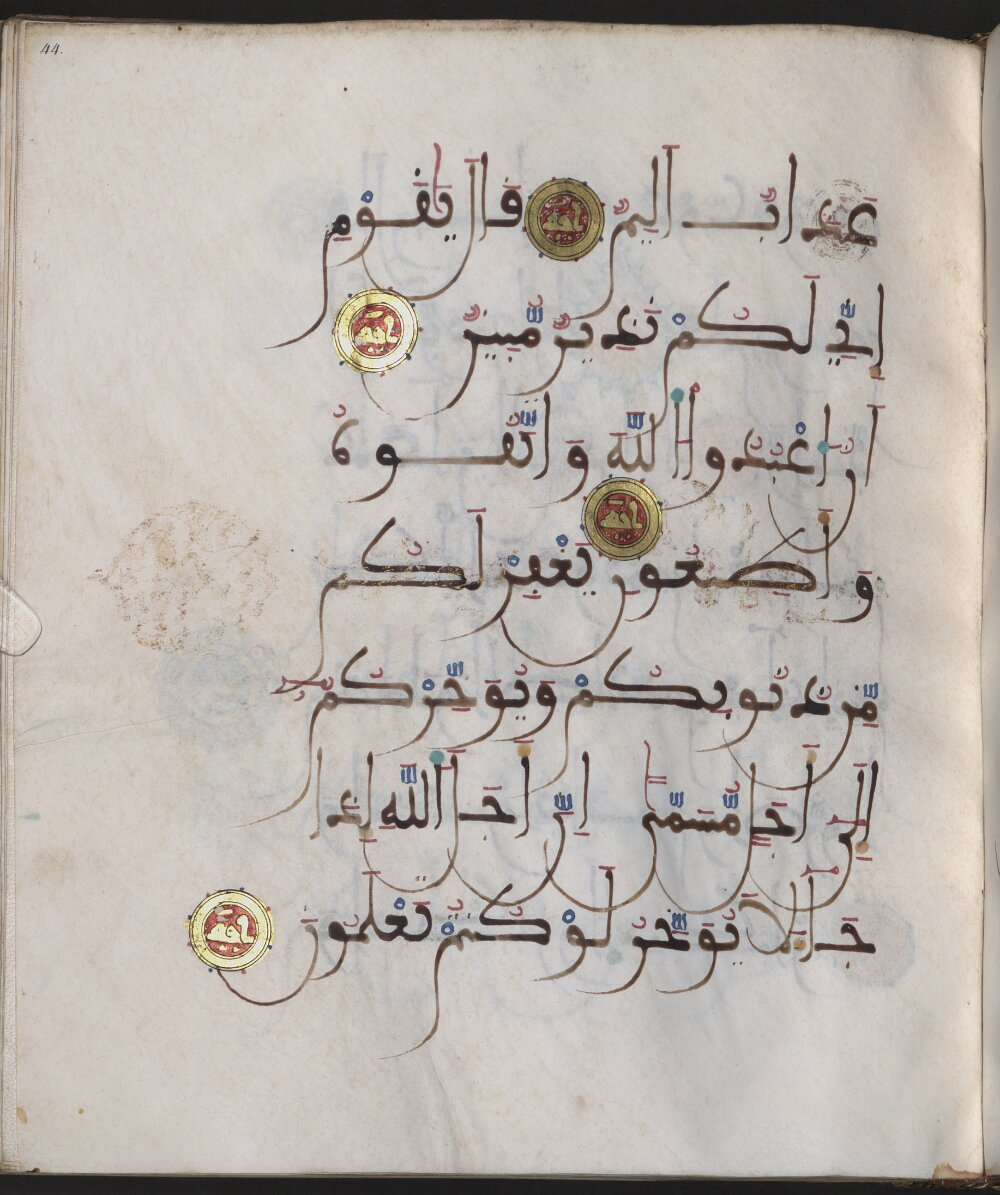 44.
عَذَابٌ اَلِيمٌ قَالَ يَٰقَوْمِ
إِنِّے لَكُمْ نَذِيرٌ مُّبِينٌ
اَنُ اُعْبُدُواْ اُللَّهَ وَاتَّقُوهُ
وَأَطِيعُونِ يَغْفِرْ لَكُم
مِّن ذُنُوبِكُمْ وَيُؤَخِّرْكُمُۥٓ
إِلَىٰٓ أَجَلٍ مُّسَمًّىۖ إِنَّ أَجَلَ اَللَّهِ إِذَا
جَآءَ لَا يُؤَخَّرُ لَوْ كُنتُمْ تَعْلَمُونَ